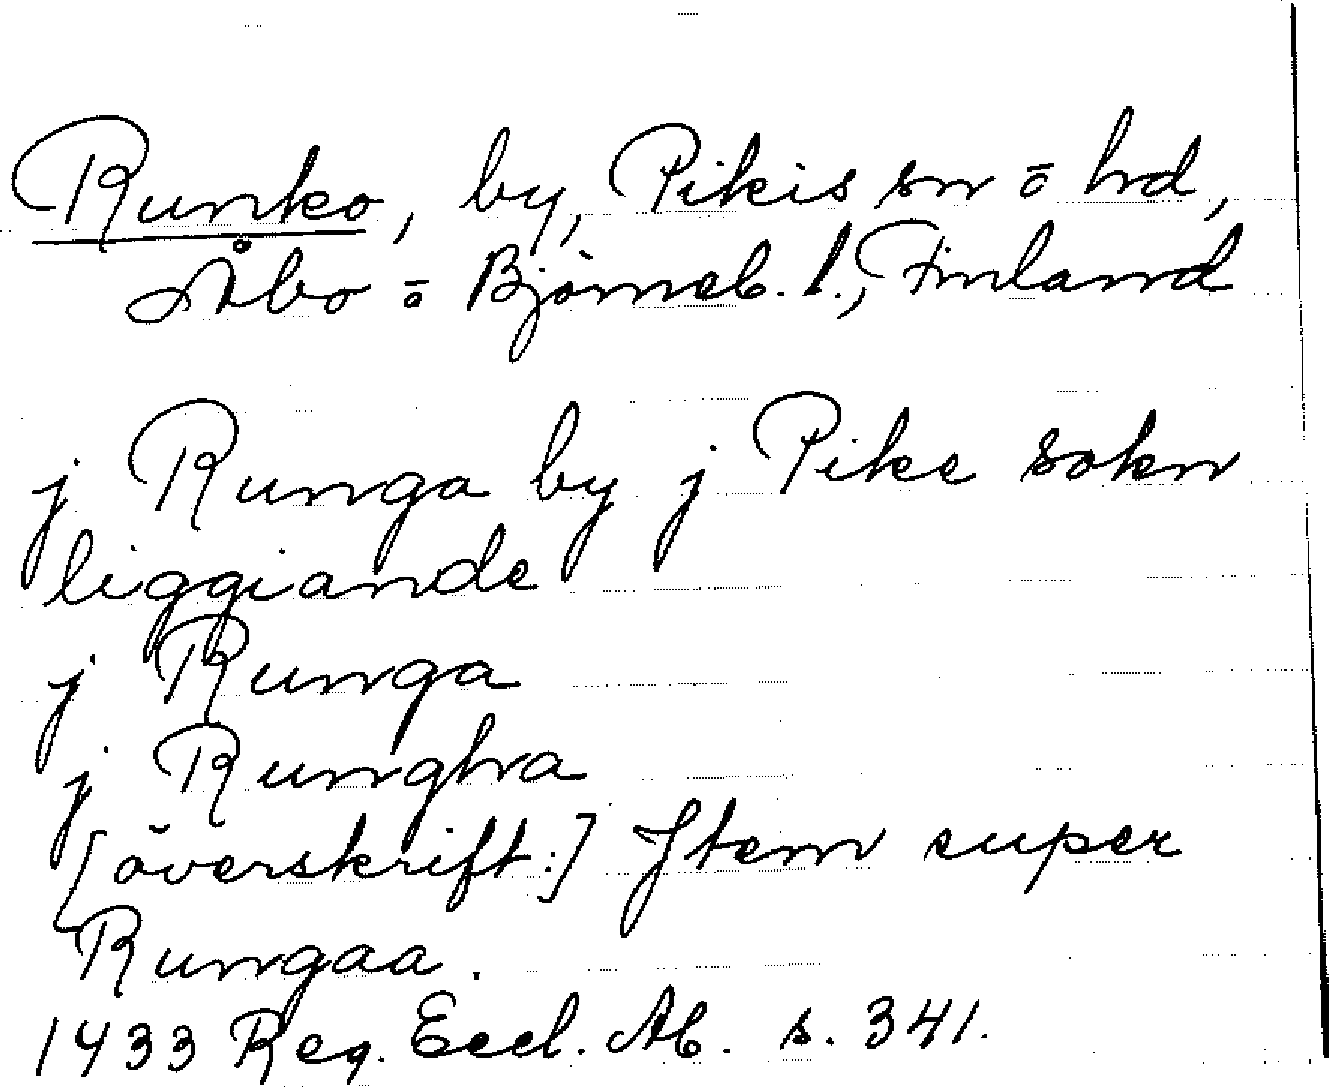 Runko, by, Pikis sn o hd,
Åbo o Björneb. l., Finland
j Runga by j Pike sokn
liggiande
j Runga
j Rungha
[överskrift:] Jtem super
Rungaa.
1433 Reg. Eccl. Ab. s. 341.